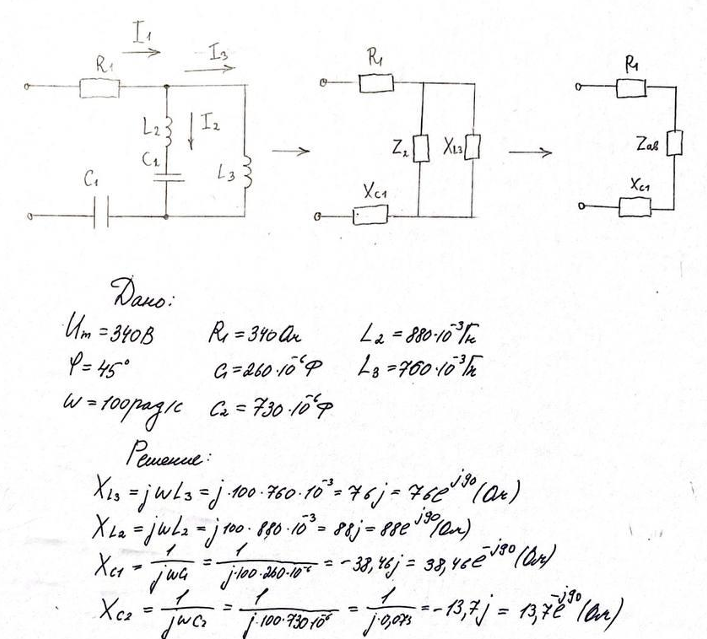 I₁ I₃
R₁ R₁ R₁
L₂ I₂
C₂ L₃ Z₂ X_L3 Z_ав
C₁ X_C1 X_C1
Дано:
U_m = 340В R₁ = 340Ом L₂ = 880·10⁻³Гн
φ = 45° C₁ = 260·10⁻⁶Ф L₃ = 760·10⁻³Гн
ω = 100рад/с C₂ = 730·10⁻⁶Ф
Решение:
X_L3 = jωL₃ = j·100·760·10⁻³ = 76j = 76e^j90 (Ом)
X_L2 = jωL₂ = j100·880·10⁻³ = 88j = 88e^j90 (Ом)
X_C1 = 1/jωC₁ = 1/j·100·260·10⁻⁶ = -38,46j = 38,46e^-j90 (Ом)
X_C2 = 1/jωC₂ = 1/j·100·730·10⁻⁶ = 1/j·0,073 = -13,7j = 13,7e^-j90 (Ом)